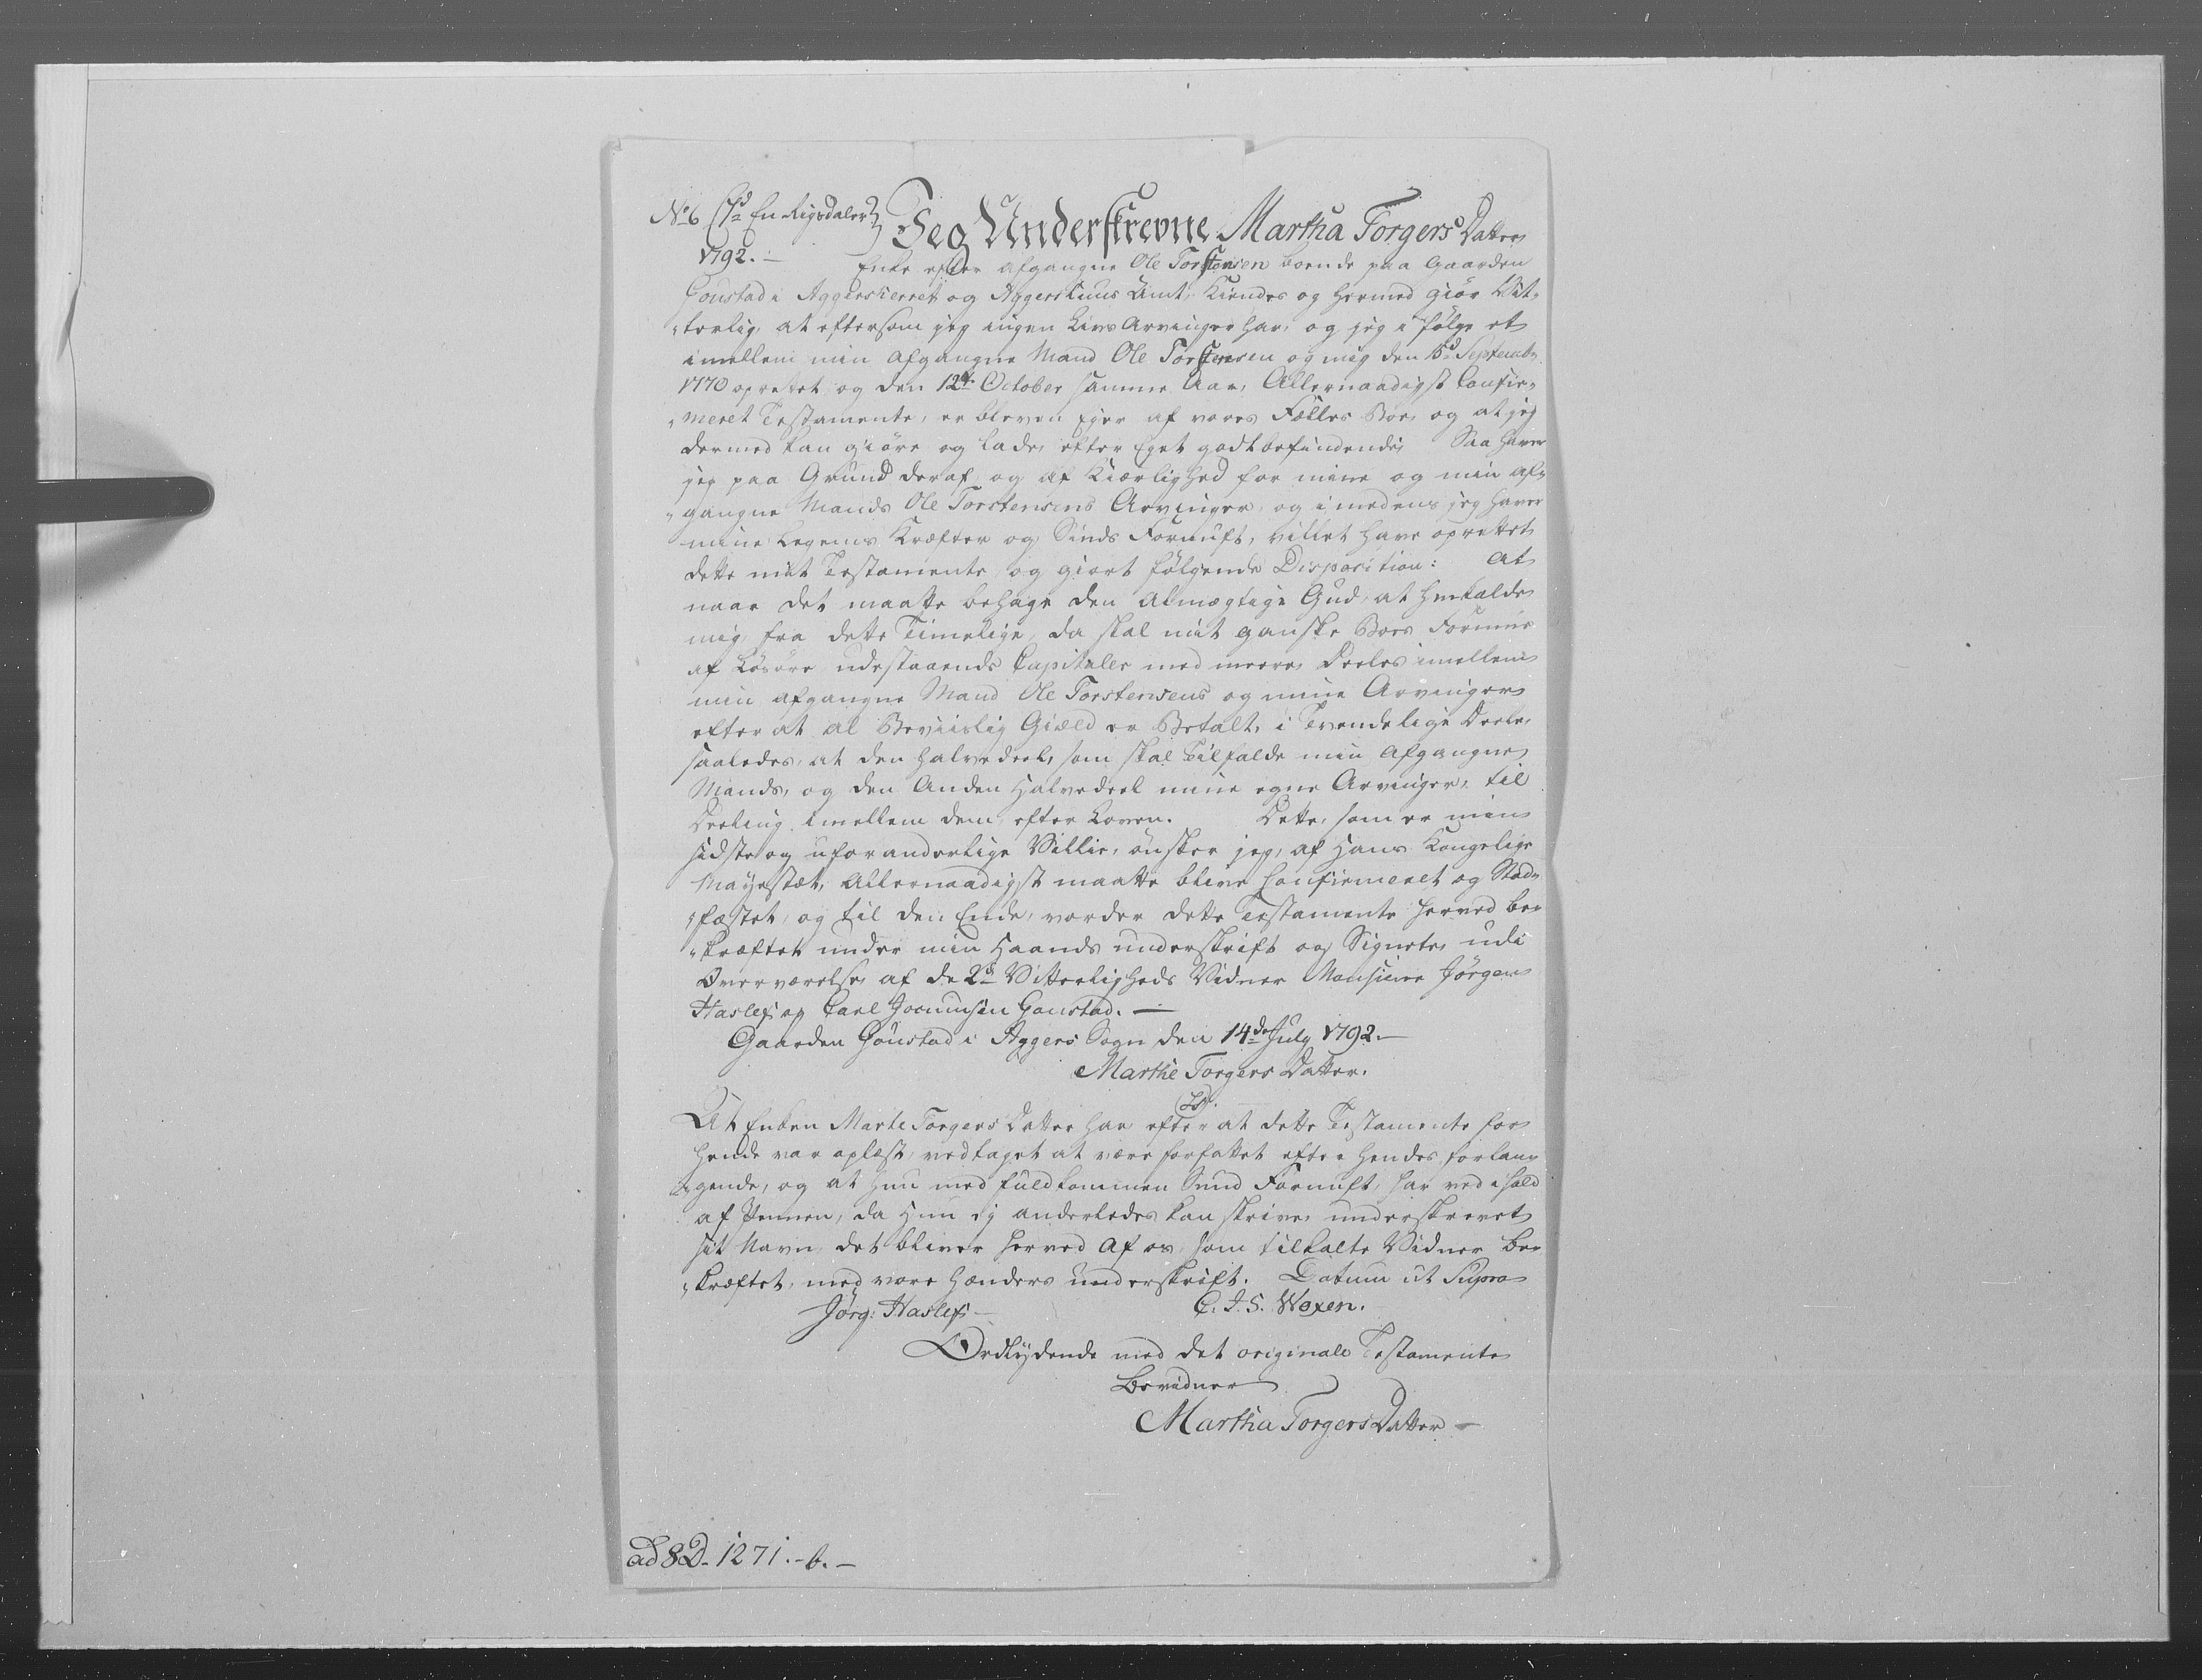 No 6 (1d En Rigsdaler)
1792.—
Jeg Underskrevne Martha Torgers Datter
Enke efter afgangne Ole Torstensen boende paa Gaarden
Goustad i Aggersherret og Aggershuus Amt, Kiendes og hermed giør Vit-
"terlig, at eftersom jeg ingen Livs Arvinger har, og jeg i følge et
imellem min afgangne Mand Ole Torstensen og mig den 15d Septembr
1770 oprettet og den 12te October samme Aar, Allernaadigst Confir-
"meret Testamente, er bleven Eger af vores Fælles Boe, og at jeg
dermed kan giøre og lade, efter Eget godtbefindende; Saa haver
jeg paa Grund deraf og af Kiærlighed for mine og min af-
"gangne Mands Ole Torstensens Arvinger, og imedens jeg haver
mine Legems Kræfter og Sinds Fornuft, villet have oprettet
dette mit Testamente og giort følgende Disposition: At
naar det maatte behage den Almægtige Gud, at henkalde
mig fra dette Timelige, da skal mit ganske Boes Formue
af Løsøre udestaaende Capitaler med meere, Deeles imellem
min afgangne Mand Ole Torstensens og mine Arvinger
efter at al Beviislig Giæld er Betalt, i Tvendelige Deele,
saaledes, at den halvedeel, som skal Tilfalde min Afgangne
Mands, og den Anden Halvedeel mine egne Arvinger, til
Deeling imellem dem efter Loven. Dette, som er min
sidste og uforanderlige Villie, ønsker jeg, af Hans Kongelige
Mayestæt, Allernaadigst maatte blive Confirmeret og Stad-
"fæstet, og til den Ende, vorder dette Testamente herved be-
"kræftet under min Haands underskrift og Signete, udi
Overværelse af de 2de Vitterligheds Vidner Monsieur Jørgen
Haslef og Carl Goustad.—
Gaarden Goustad i Aggers Sogn den 14de July 1792.—
Marthe Torgers Datter.
(LS)
At Enken Marte Torgers Datter har efter at dette Testamente for
hende var oplæst, vedtaget at være forfattet efter hendes forlan-
"gende, og at hun med fuldkommen Sund Fornuft, har ved ihold
af Pennen, da Hun ey anderledes kan skrive, underskrevet
sit Navn, det bliver herved af os, som tilkalte Vidner be-
"kræftet, med vore Hænders underskrift. Datum ut Supra
Jørg: Haslef— C. J. S. Woxen.
Ordlydende med det originale Testamente
Bevidner
Martha Torgers Datter—
ad 8D. 1271.-b.—